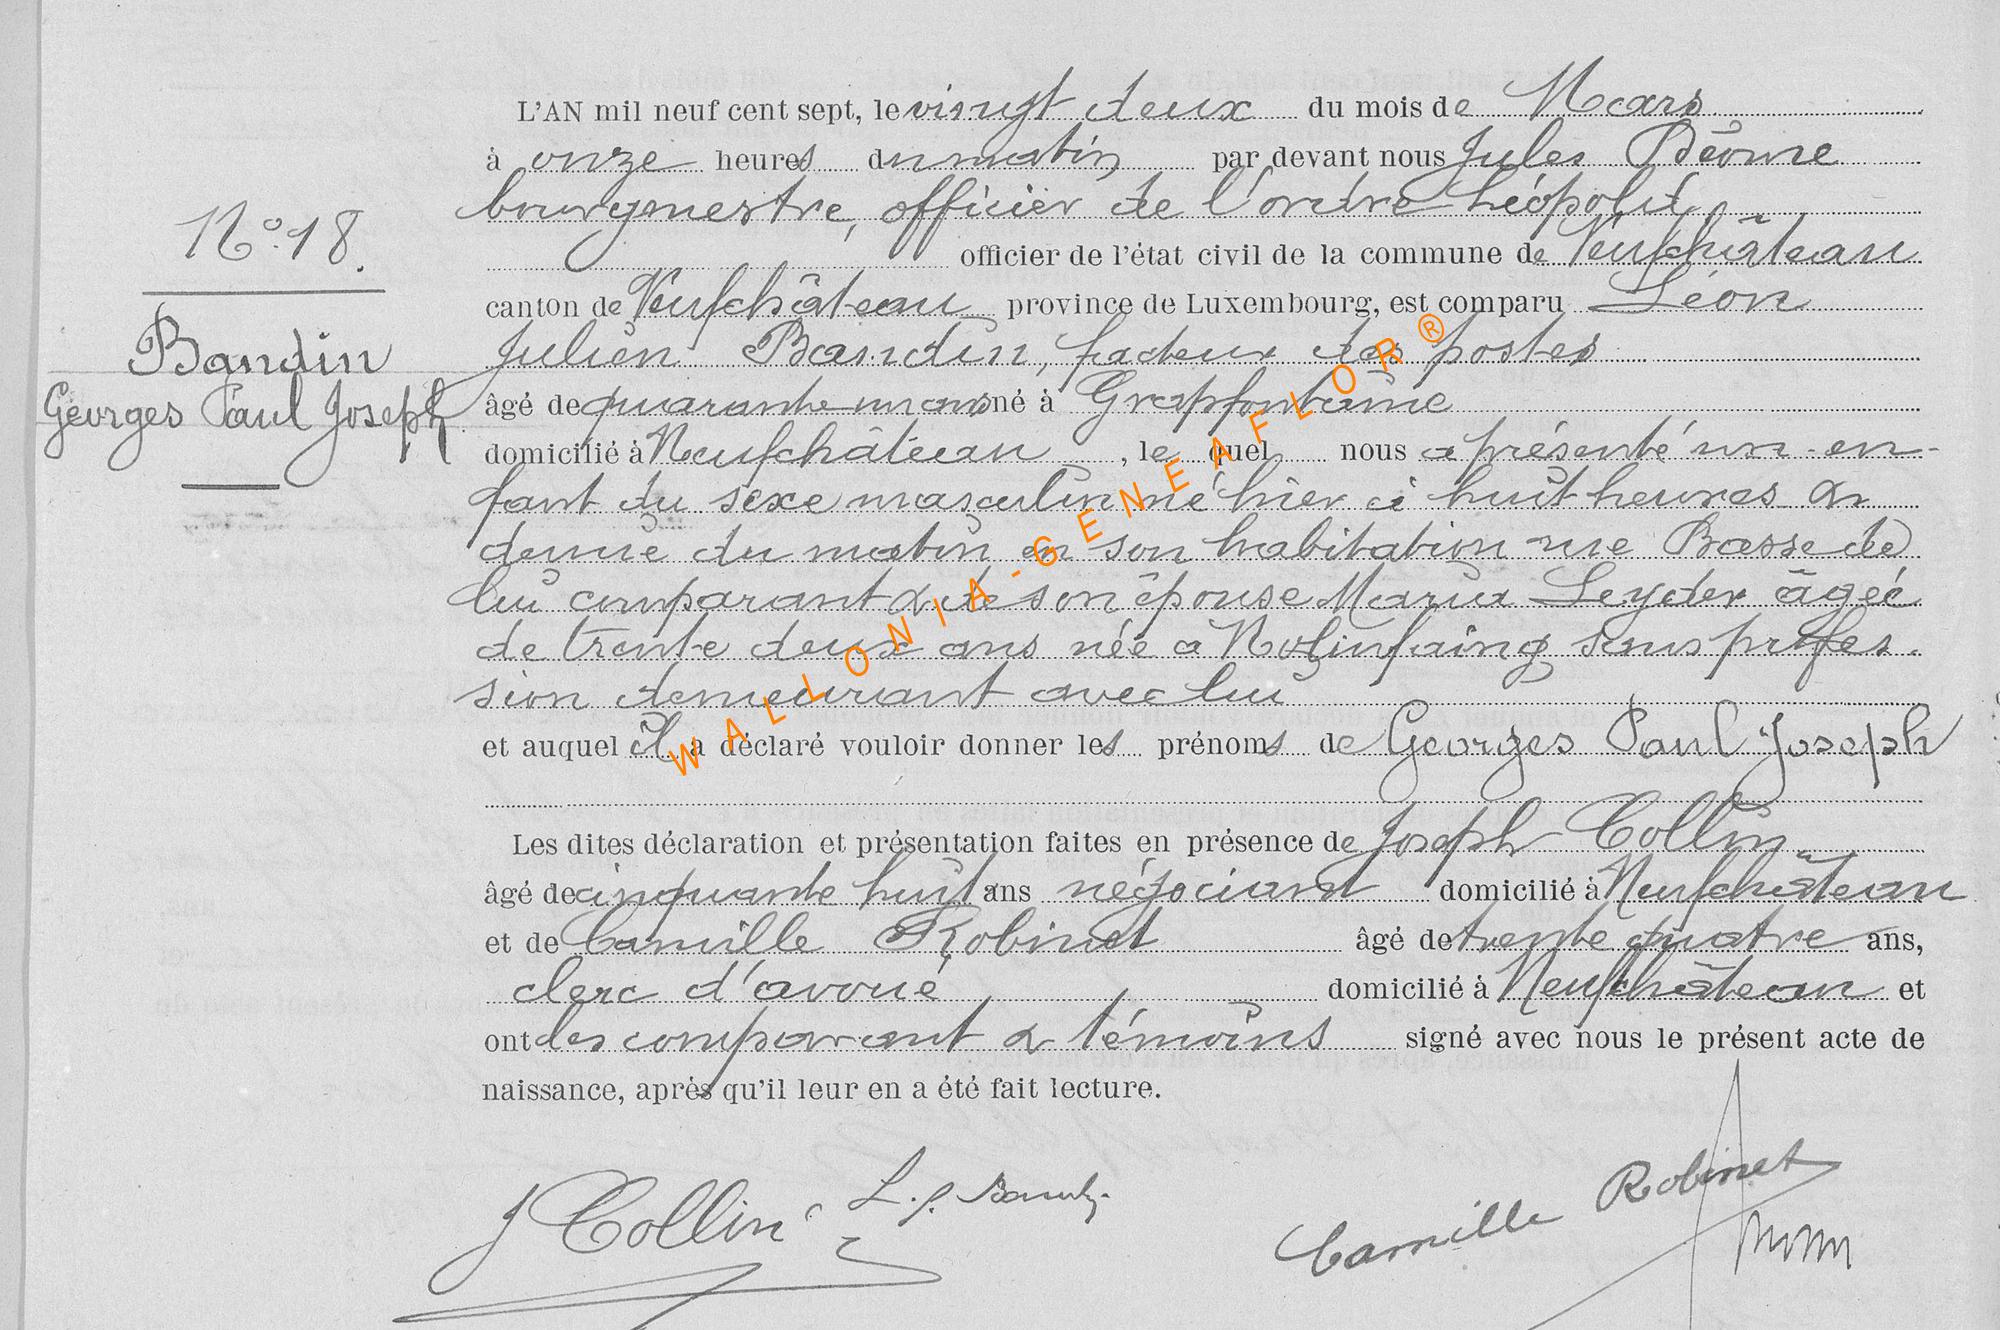 N° 18.
Bandin
Georges Paul Joseph
L'AN mil neuf cent sept, le vingt deux du mois de Mars
à onze heures du matin par devant nous Jules
bourgmestre, officier de l'ordre Léopold
officier de l'état civil de la commune de Neufchâteau
canton de Neufchâteau province de Luxembourg, est comparu Léon
Julien Bandin, facteur des postes
âgé de quarante un ans né à Grapfontaine
domicilié à Neufchâteau, le quel nous a présenté un en-
fant du sexe masculin né hier à huit heures &
demie du matin en son habitation rue Basse de
lui comparant & de son épouse Maria Leyder âgée
de trente deux ans née à Nolinfaing sans profes-
sion demeurant avec lui
et auquel il a déclaré vouloir donner les prénoms de Georges Paul Joseph
Les dites déclaration et présentation faites en présence de Joseph Collin
âgé de cinquante huit ans négociant domicilié à Neufchâteau
et de Camille Robinet âgé de trente quatre ans,
clerc d'avoué domicilié à Neufchâteau et
ont les comparant & témoins signé avec nous le présent acte de
naissance, après qu'il leur en a été fait lecture.
J Collin
Camille Robinet
WALLONIA-GENEAFLOR®